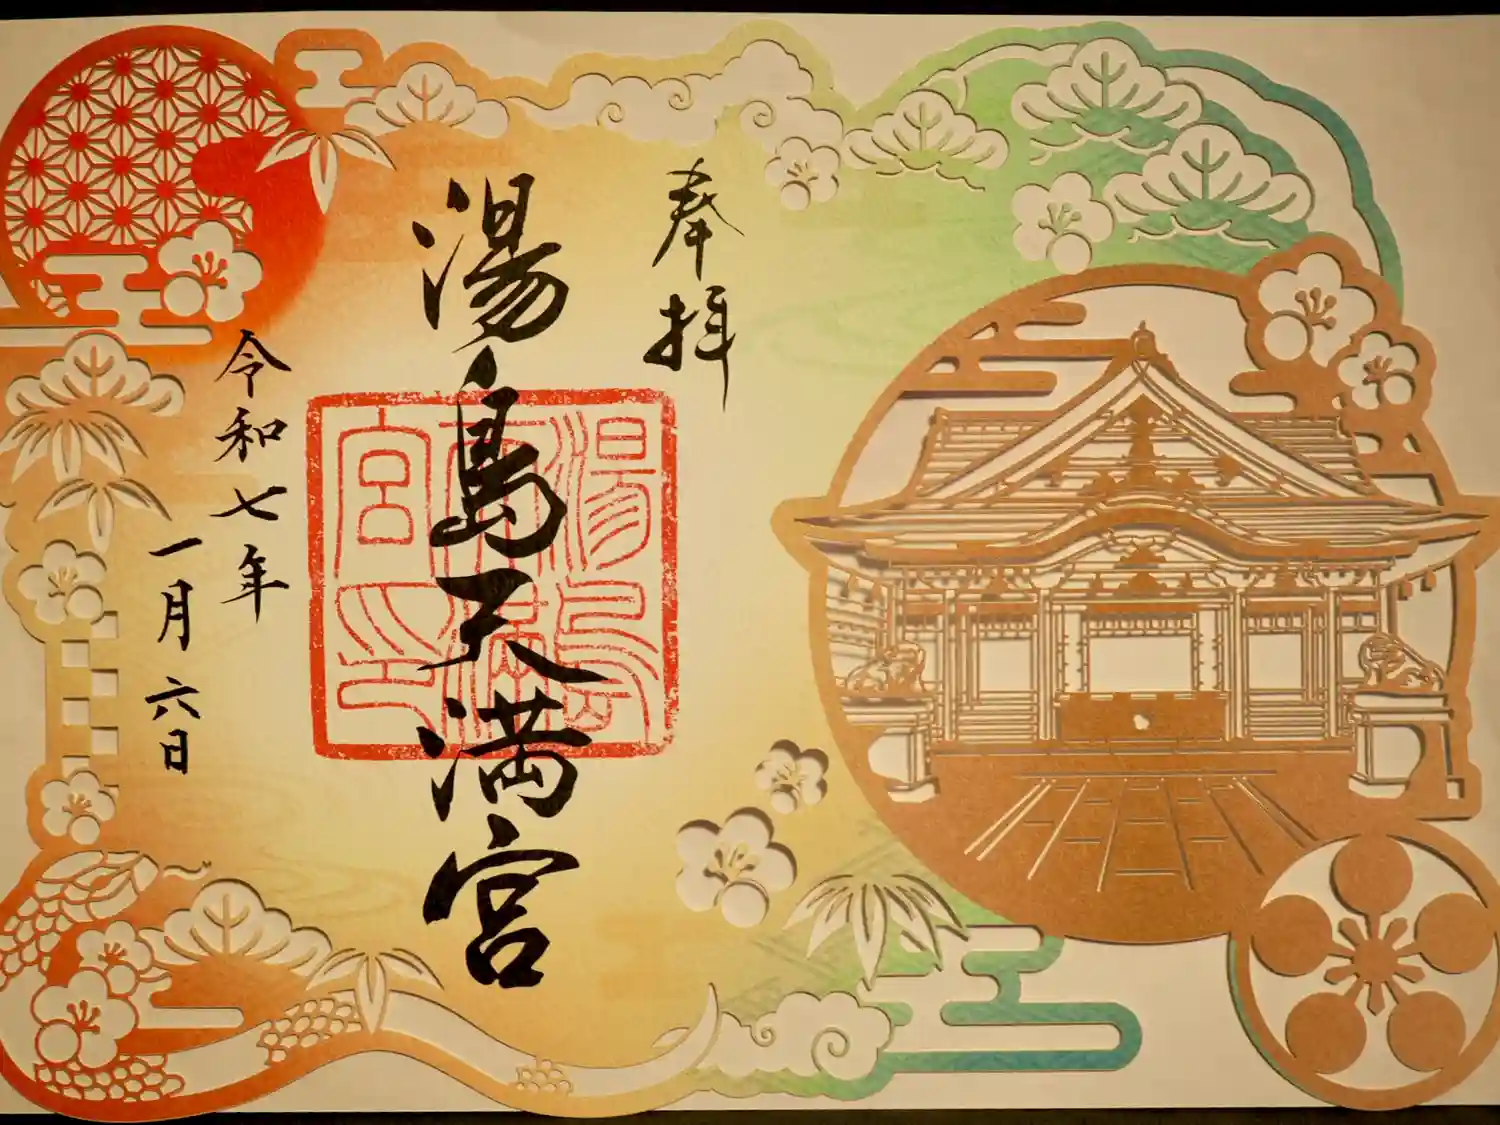 奉拝
湯島天満宮
湯島
天満
宮印
令和七年
一月六日